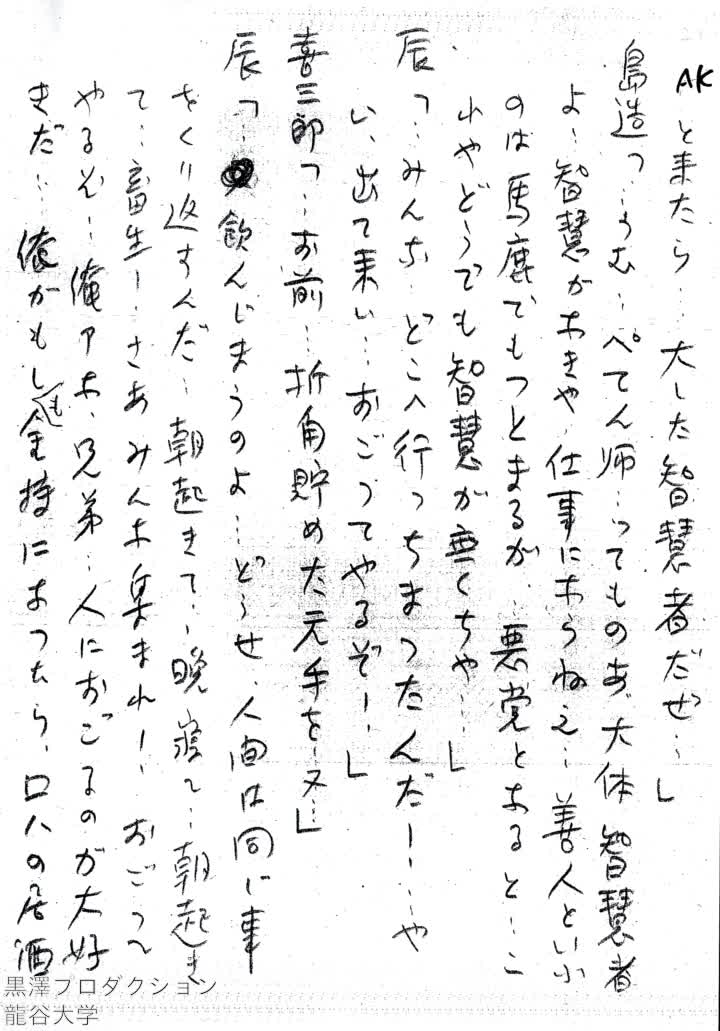 AK
と来たら…大した智慧者だぜ…」
島造「…うむ…ぺてん師…ってものあ、大体智慧者
よ…智慧がなきや、仕事にならねえ…善人といふ
のは馬鹿でもつとまるが…悪党となると…こ
れやどうでも智慧が無くちや…」
辰「…みんな…どこへ行っちまつたんだー…や
い、出て来い…おごつてやるぞー…」
喜三郎「…お前…折角貯めた元手を…又…」
辰「…飲んじまうのよ…どうせ、人間は同じ事
をくり返すんだ…朝起きて…晩寝て…朝起き
て…畜生ー…さあみんな集まれー…おごつて
やるぞ…俺アな、兄弟…人におごるのが大好
きだ…俺がもしも金持になつたら、ロハの居酒
黒澤プロダクション
龍谷大学